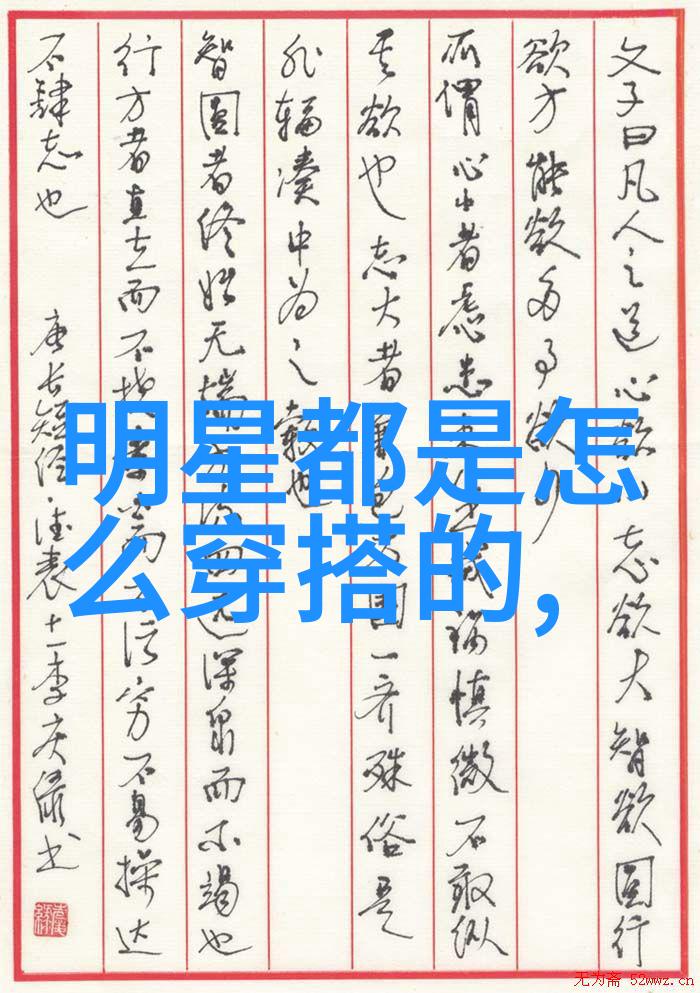 文子曰凡人之道心欲小志欲大智欲圆行
欲方能欲多事欲少
所谓心小者虑患未生戒祸慎微不敢纵
其欲也志大者兼包万国一齐殊俗是
非辐凑中为之毂也
智圆者终始无端方流四远深泉而不竭也
行方者直立而不挠素白而不污穷不易操达
不肆志也
唐长短经·德表十一李庆绿书
明星都是怎
么穿搭的,
无为斋 52wwz.cn